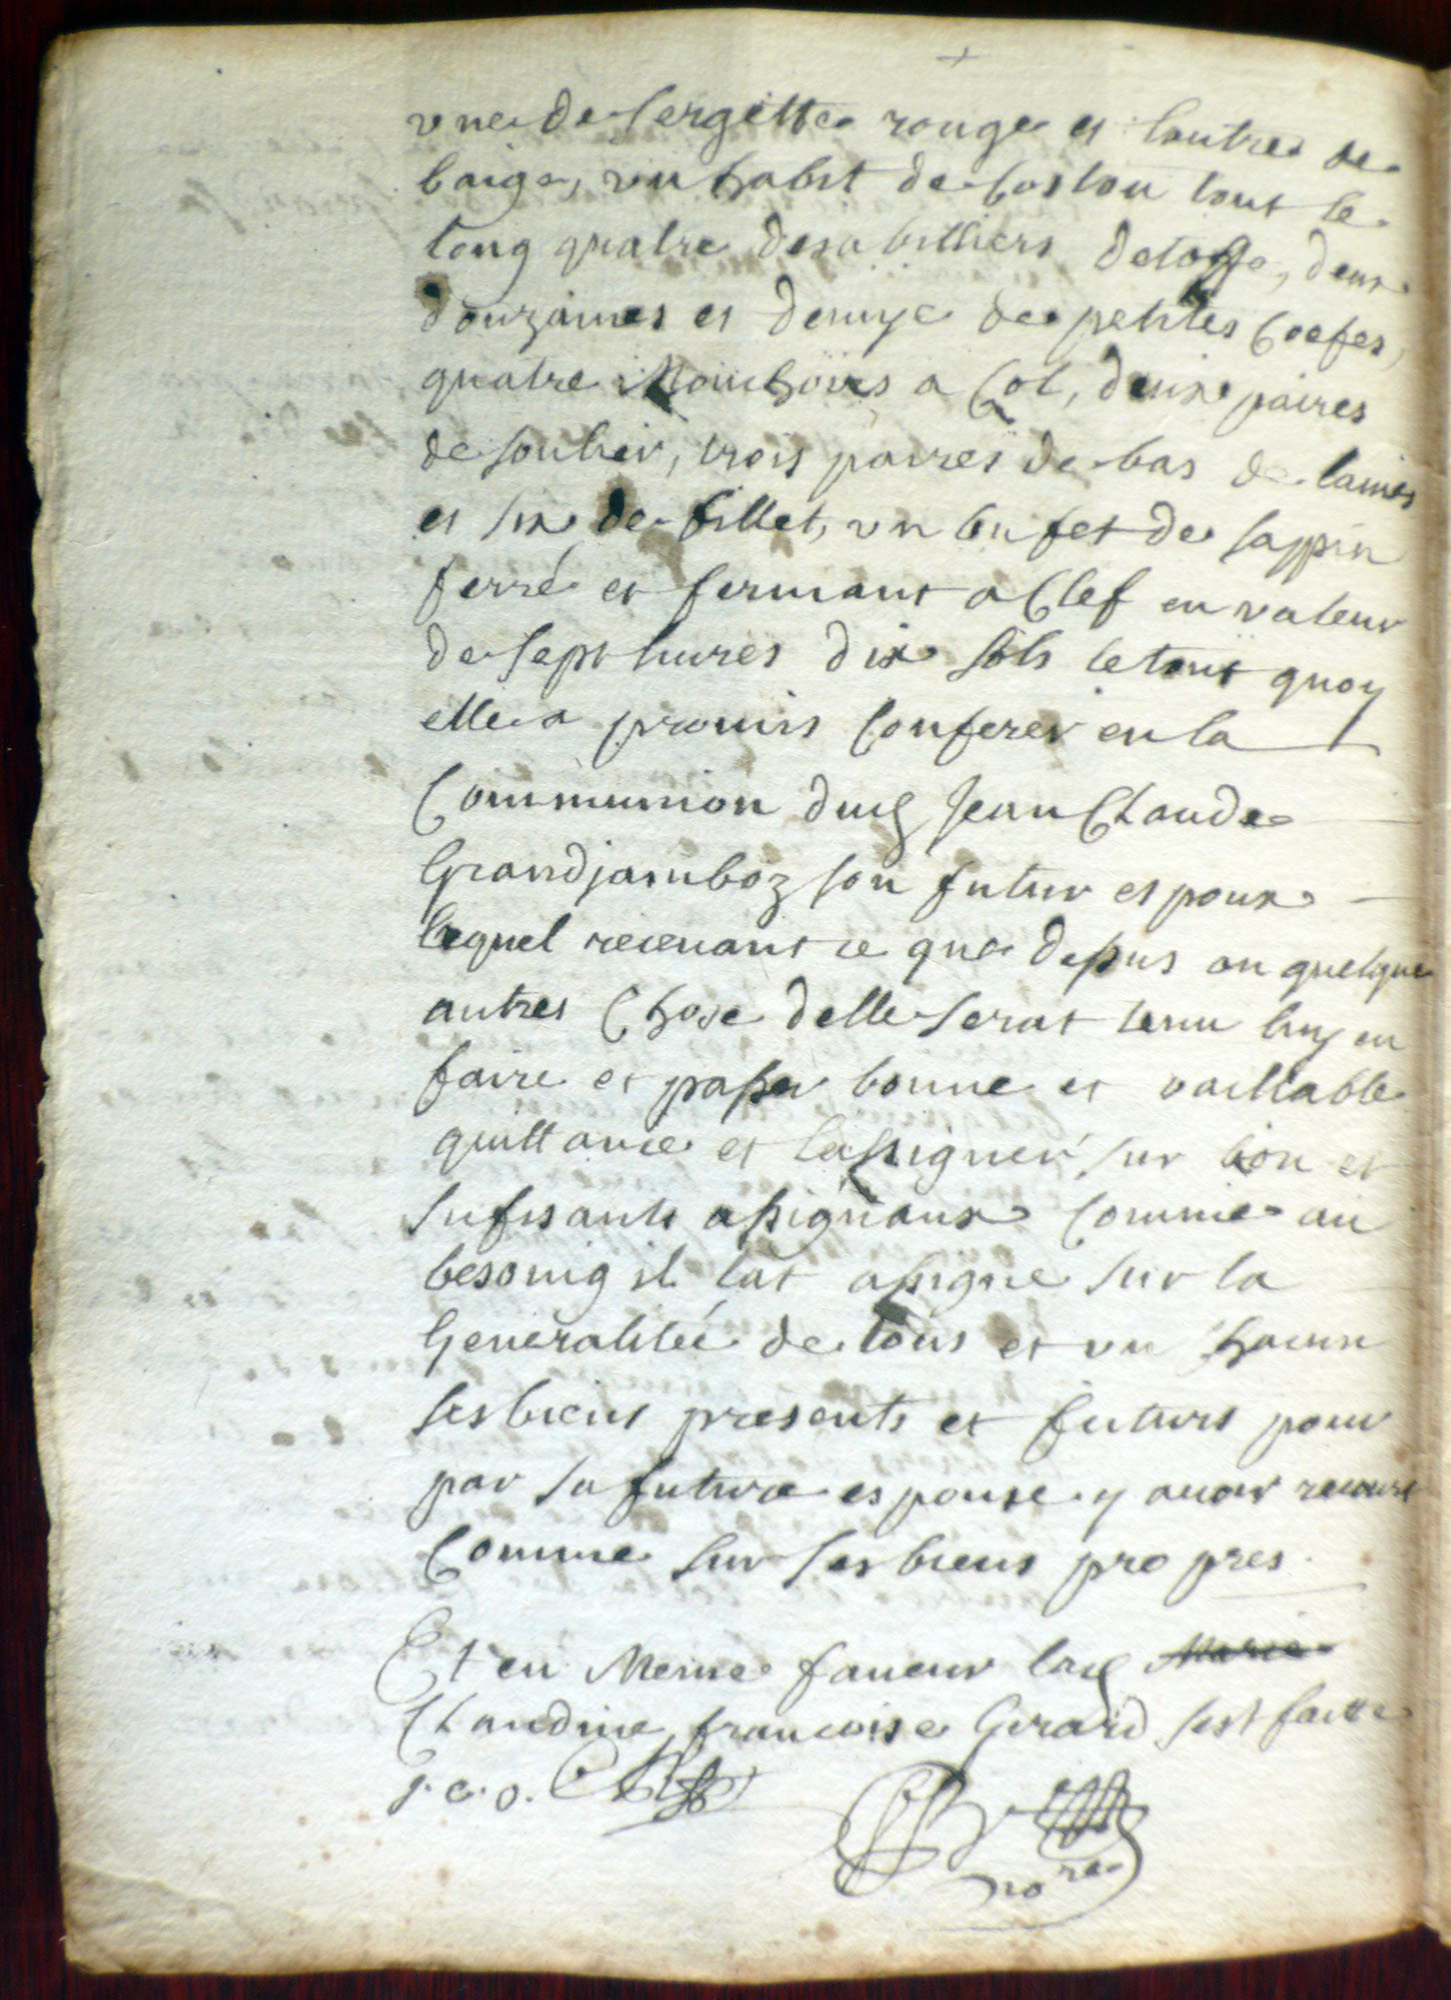 une de sergette rouge et lautre de
baige, un habit de coston tout le
long quatre desabilliers detoffe, deux
douzaines et demye de petites Coefes,
quatre Mouchoirs a Col, deux paires
de soulier, trois paires de bas de laines
et six de fillet, un bufet de sappin
ferré et fermant a Clef en valeur
de sept livres dix sols le tout quoy
elle a promis Conferer en la
Communion dud Jean Claude
Grandjamboz son futur espoux
lequel recevant ce que dessus ou quelque
autres Chose delle serat tenu luy en
faire et passer bonne et vaillable
quittance et lassigner sur bon et
sufisants assignaux Comme au
besoing il lat assigne sur la
Generalitée de tous et un chacun
ses biens presents et futurs pour
par sa future espouse y avoir recours
Comme sur ses biens propres.
Et en Meme faveur lad Marie
Claudine francoise Girard sest faitte
J. C. O.
no re